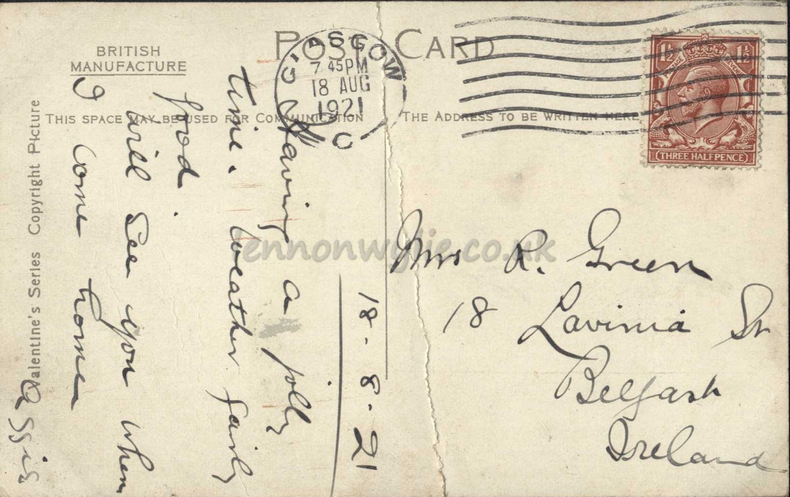 BRITISH
MANUFACTURE
POST CARD
GLASGOW
7 45PM
18 AUG
1921
C
THIS SPACE MAY BE USED FOR COMMUNICATION
THE ADDRESS TO BE WRITTEN HERE
1½ 1½
THREE HALFPENCE
Valentine's Series Copyright Picture
18-8-21
Having a jolly
time. Weather fairly
good
will see you when
I come home
Mrs R. Green
18 Lavinia St
Belfast
Ireland
lennonwylie.co.uk